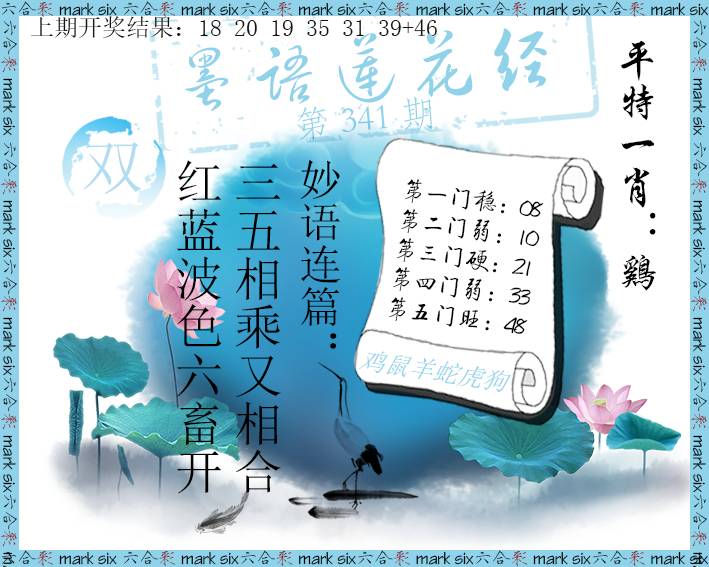 上期开奖结果：18 20 19 35 31 39+46
墨語蓮花经
第 341 期
双
平特一肖：鷄
妙语连篇：
三五相乘又相合
红蓝波色六畜开
第一门稳：08
第二门弱：10
第三门硬：21
第四门弱：33
第五门旺：48
鸡鼠羊蛇虎狗
六合彩 mark six 六合彩 mark six 六合彩 mark six 六合彩 mark six 六合彩 mark six
六合彩 mark six 六合彩 mark six 六合彩 mark six 六合彩 mark six 六合彩 mark six